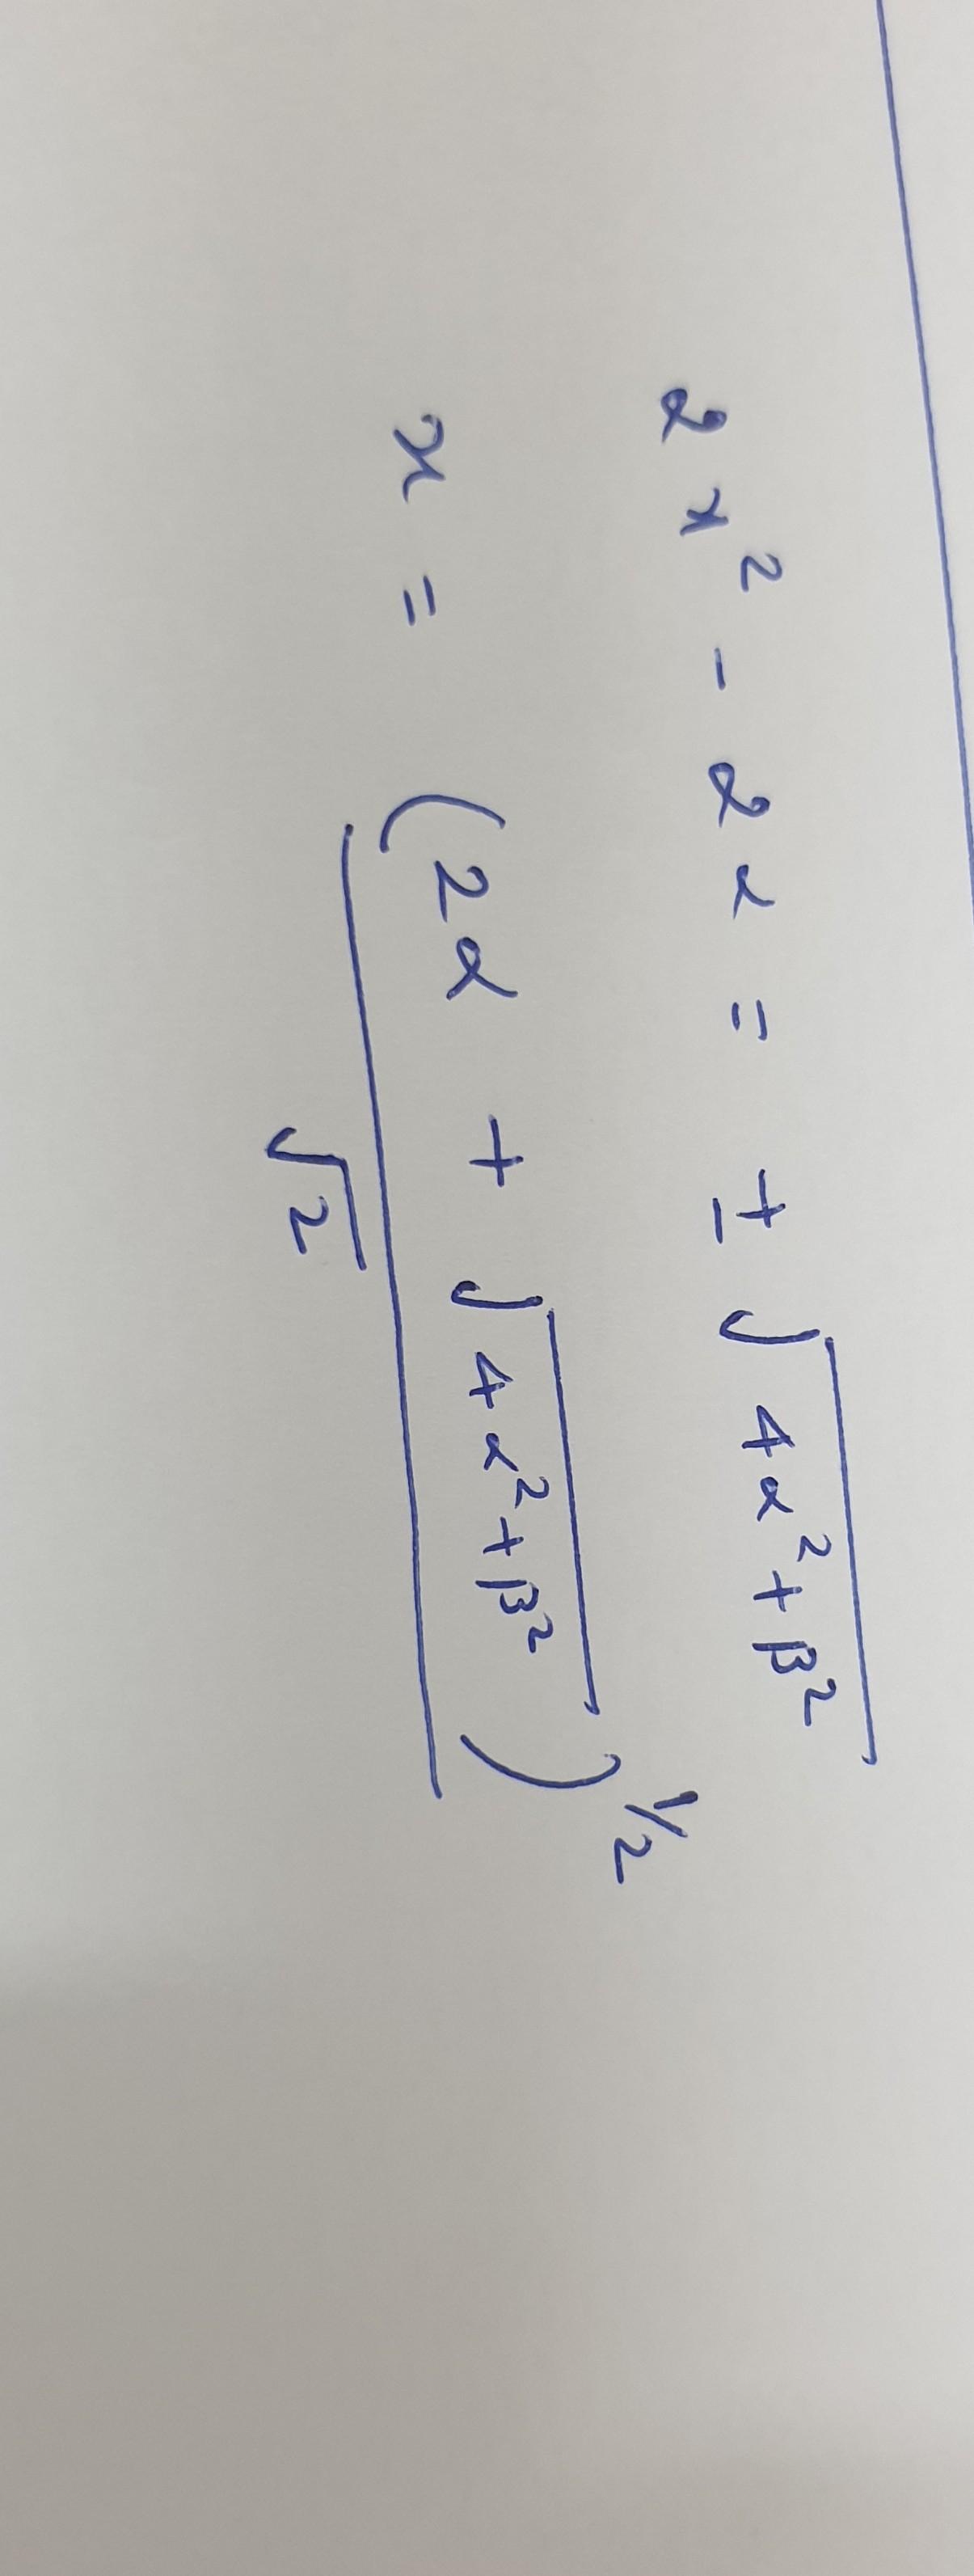 2x² - 2α = ± √(4α² + β²)
x = (2α + √(4α² + β²))^(1/2) / √2